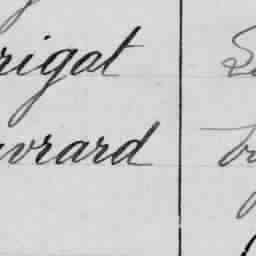 rigat
uvrard